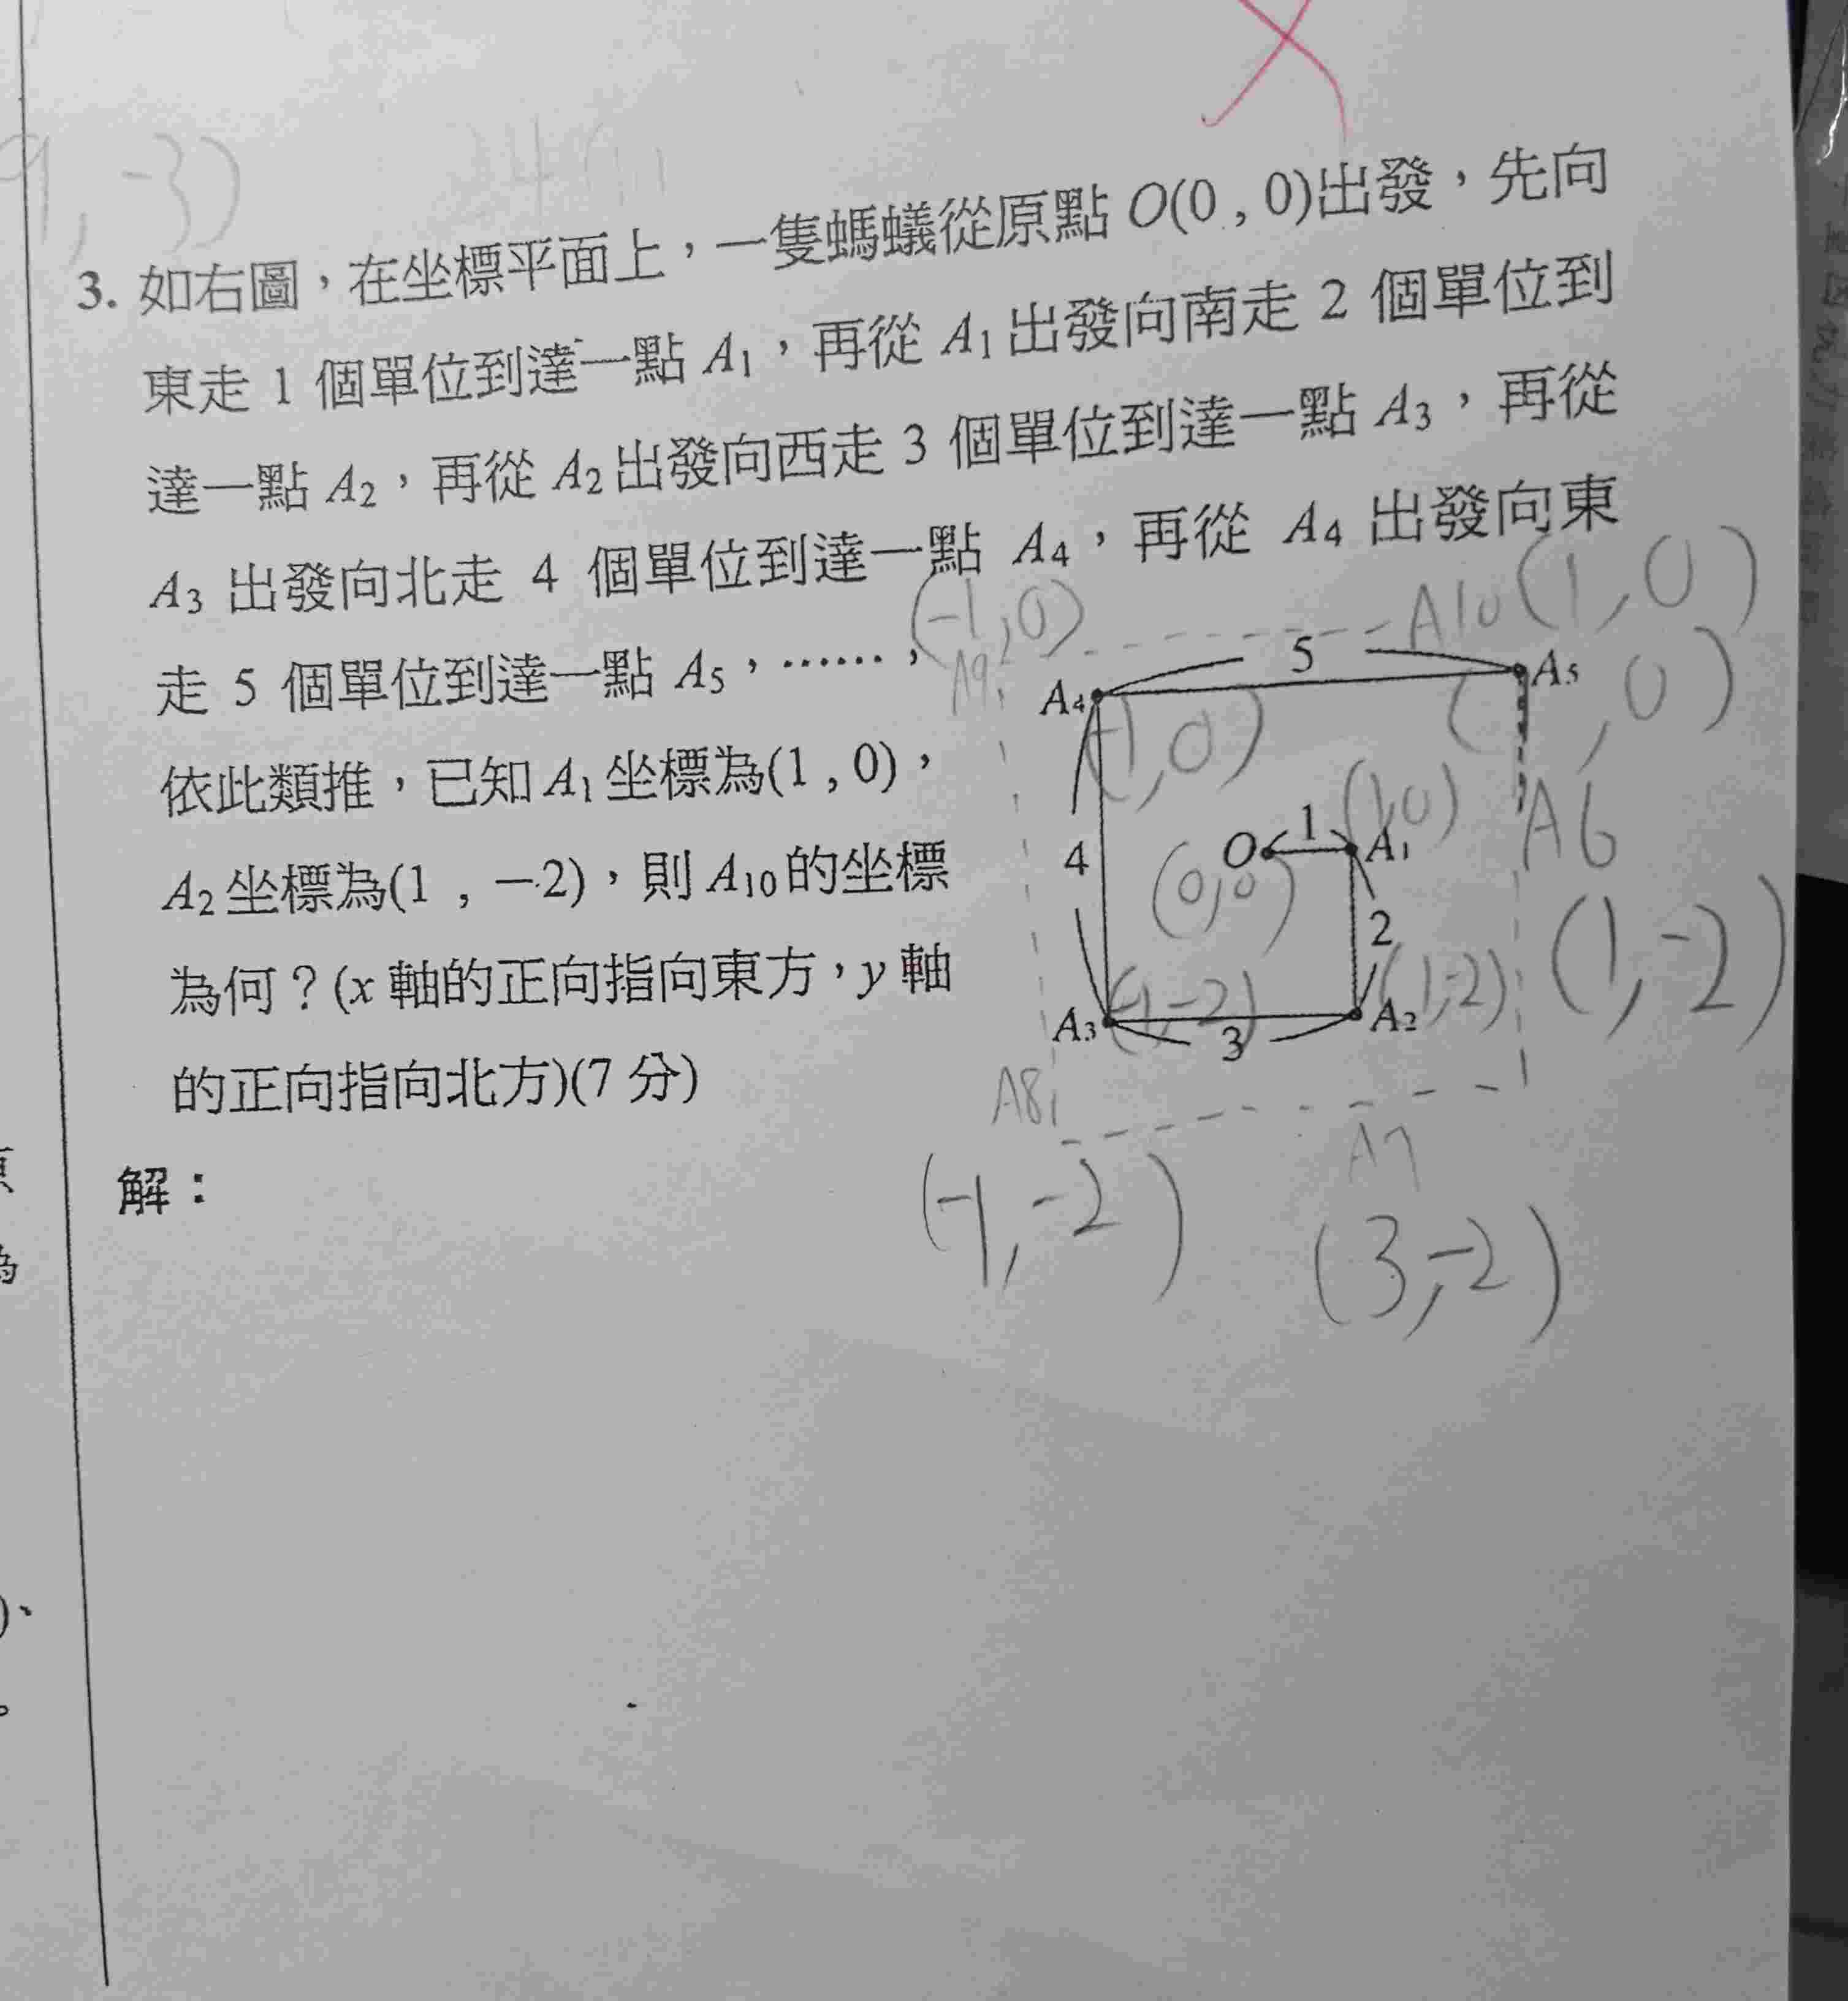 9, -3)
3. 如右圖，在坐標平面上，一隻螞蟻從原點 O(0 , 0)出發，先向
東走 1 個單位到達一點 A₁，再從 A₁ 出發向南走 2 個單位到
達一點 A₂，再從 A₂ 出發向西走 3 個單位到達一點 A₃，再從
A₃ 出發向北走 4 個單位到達一點 A₄，再從 A₄ 出發向東
走 5 個單位到達一點 A₅，……，
依此類推，已知 A₁ 坐標為(1 , 0)，
A₂ 坐標為(1 , －2)，則 A₁₀ 的坐標
為何？(x 軸的正向指向東方，y 軸
的正向指向北方)(7 分)
解：
(-1,0)
A10 (1,0)
A9
5
A₄
A₅
(-1,0)
( ,0)
O
1
A₁
(1,0)
A6
4
(0,0)
2
(1,-2)
A₃
(-1,-2)
3
A₂
(1,-2)
A8
A7
(-1,-2)
(3,-2)